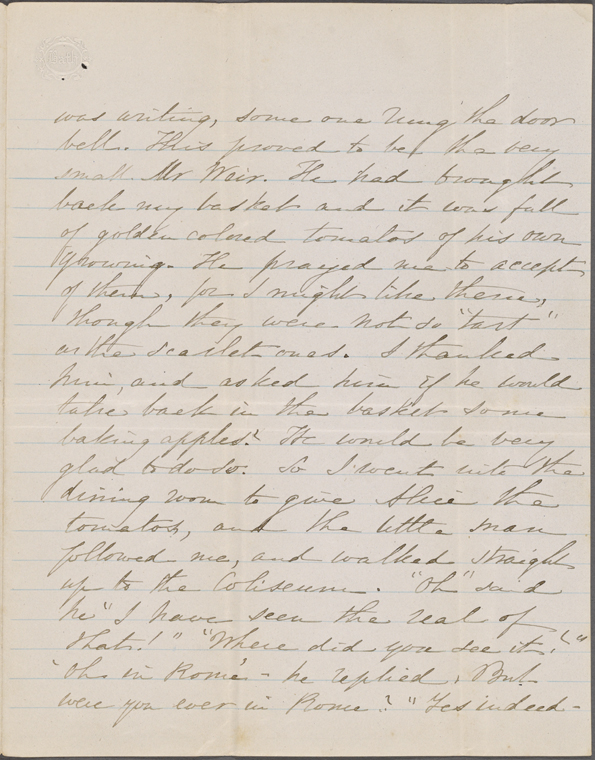 was writing, some one rung the door
bell. This proved to be the very
small Mr Weir. He had brought
back my basket and it was full
of golden colored tomatos of his own
growing. He prayed me to accept
of them, for I might like them,
though they were not so "tart"
as the scarlet ones. I thanked
him, and asked him if he would
take back in the basket some
baking apples? He would be very
glad to do so. So I went into the
dining room to give Alice the
tomatos, and the little man
followed me, and walked straight
up to the Coliseum. "Oh" said
he "I have seen the real of
that!" "Where did you see it?"
"Oh in Rome" - he replied. But
were you ever in Rome? "Yes indeed -